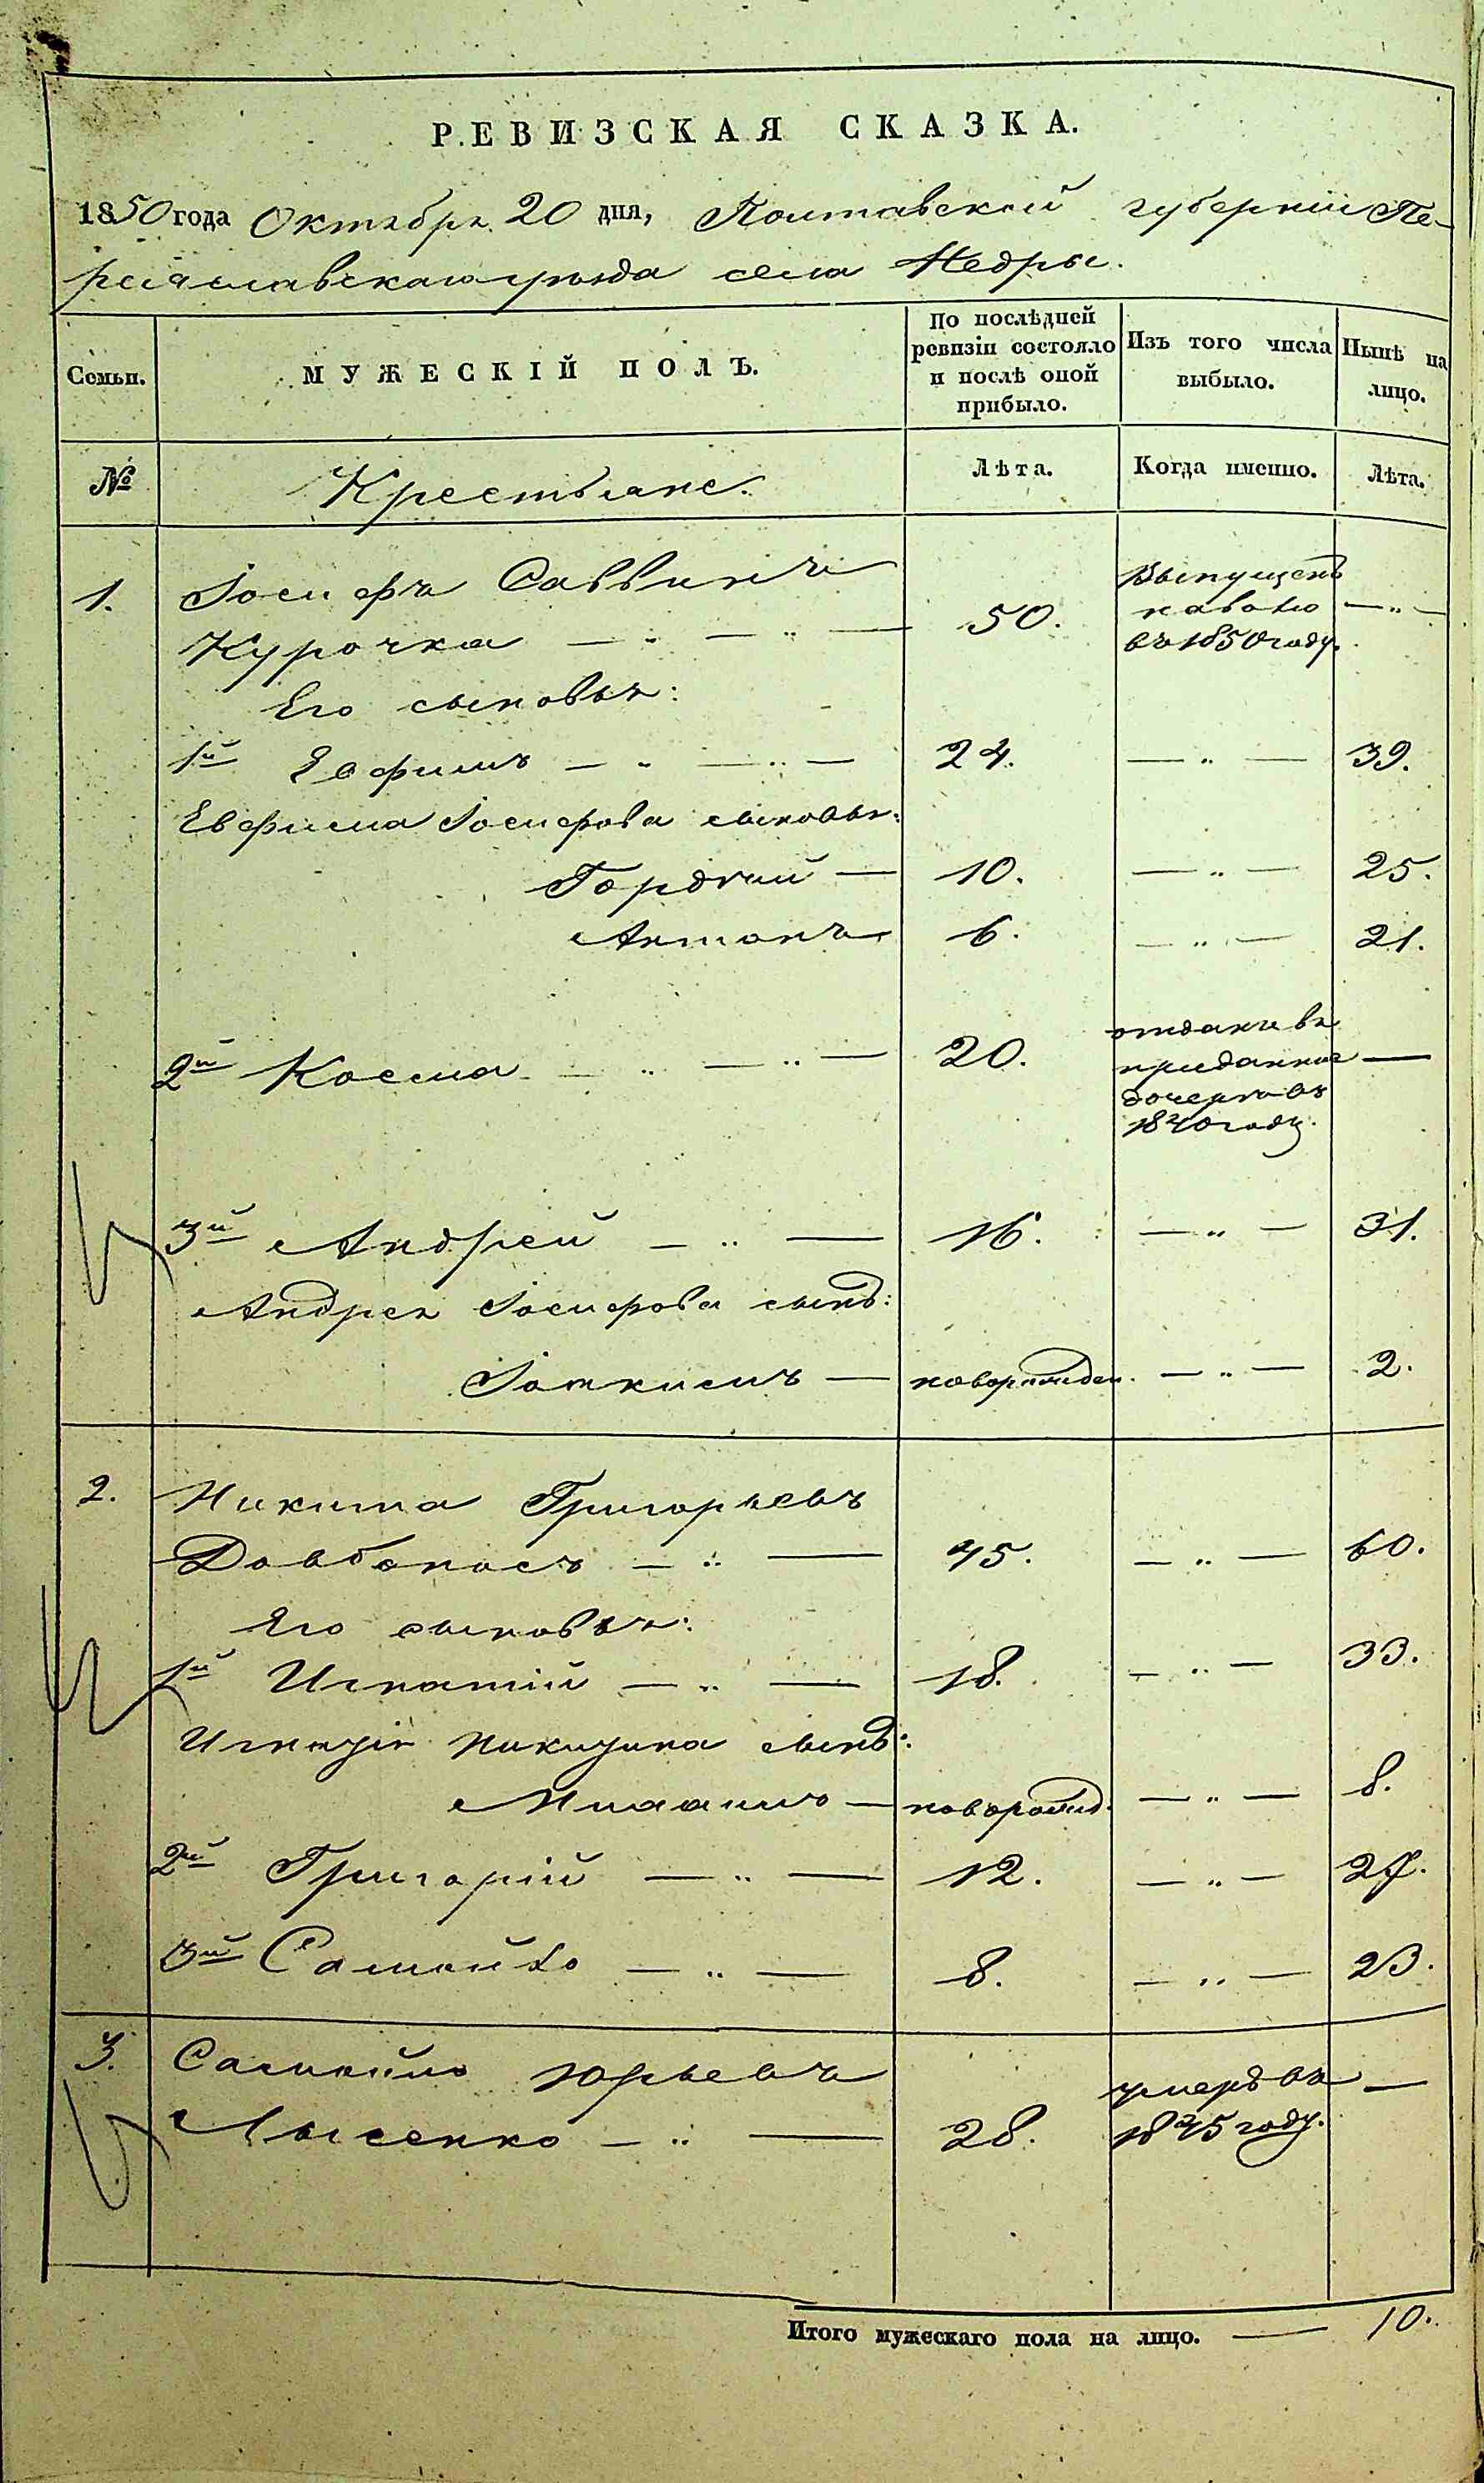 РЕВИЗСКАЯ СКАЗКА.
1850 года Октября 20 дня, Полтавской губернiи Пе-
реяславскаго уѣзда села Недры.
Семьи.
МУЖЕСКIЙ ПОЛЪ.
По послѣдней
ревизiи состояло
и послѣ оной
прибыло.
Изъ того числа
выбыло.
Нынѣ на
лицо.
№
Крестьяне.
Лѣта.
Когда именно.
Лѣта.
1. Iосифъ Саввинъ
Курочка — " — " — 50.
Выпущенъ
на волю
въ 1850 году.
— " —
Его сыновья:
1й Евфимъ — " — " — 24. — " — 39.
Евфима Iосифова сыновья:
Гордѣй — 10. — " — 25.
Антонъ 6. — " — 21.
2й Косма — " — " — 20.
отданъ въ
приданное
дочери въ
1840 году.
—
3й Андрей — " — 16. — " — 31.
Андрея Iосифова сынъ:
Iоакимъ — новорожден. — " — 2.
2. Никита Григорьевъ
Довбоносъ — " — 45. — " — 60.
Его сыновья:
1й Игнатiй — " — 18. — " — 33.
Игнатiя Никитина сынъ:
— новорожд. — " — 8.
2й Григорiй — " — 12. — " — 27.
3й Самойло — " — 8. — " — 23.
3. Самойло Юрьевъ
Лысенко — " — 28.
умеръ въ
1845 году.
—
Итого мужескаго пола на лицо. — 10.